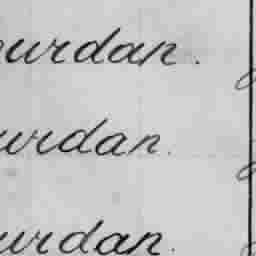 ourdan.
urdan.
urdan.